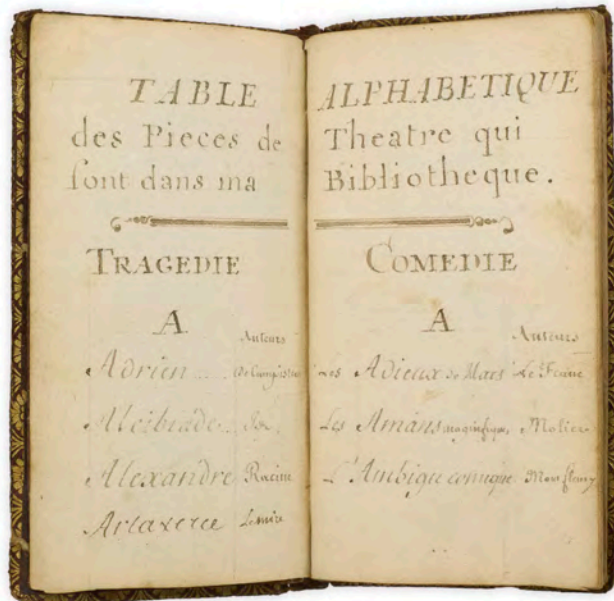 TABLE
des Pieces de
sont dans ma
TRAGEDIE
A
Auteurs
Adrien ..... de Campistron
Alcibiade .. Id.
Alexandre Racine
Artaxerce Lemire
ALPHABETIQUE
Theatre qui
Bibliotheque.
COMEDIE
A
Auteurs
Les Adieux de Mars Le Franc
Les Amans magnifiques, Moliere
L'Ambigu comique Montfleury